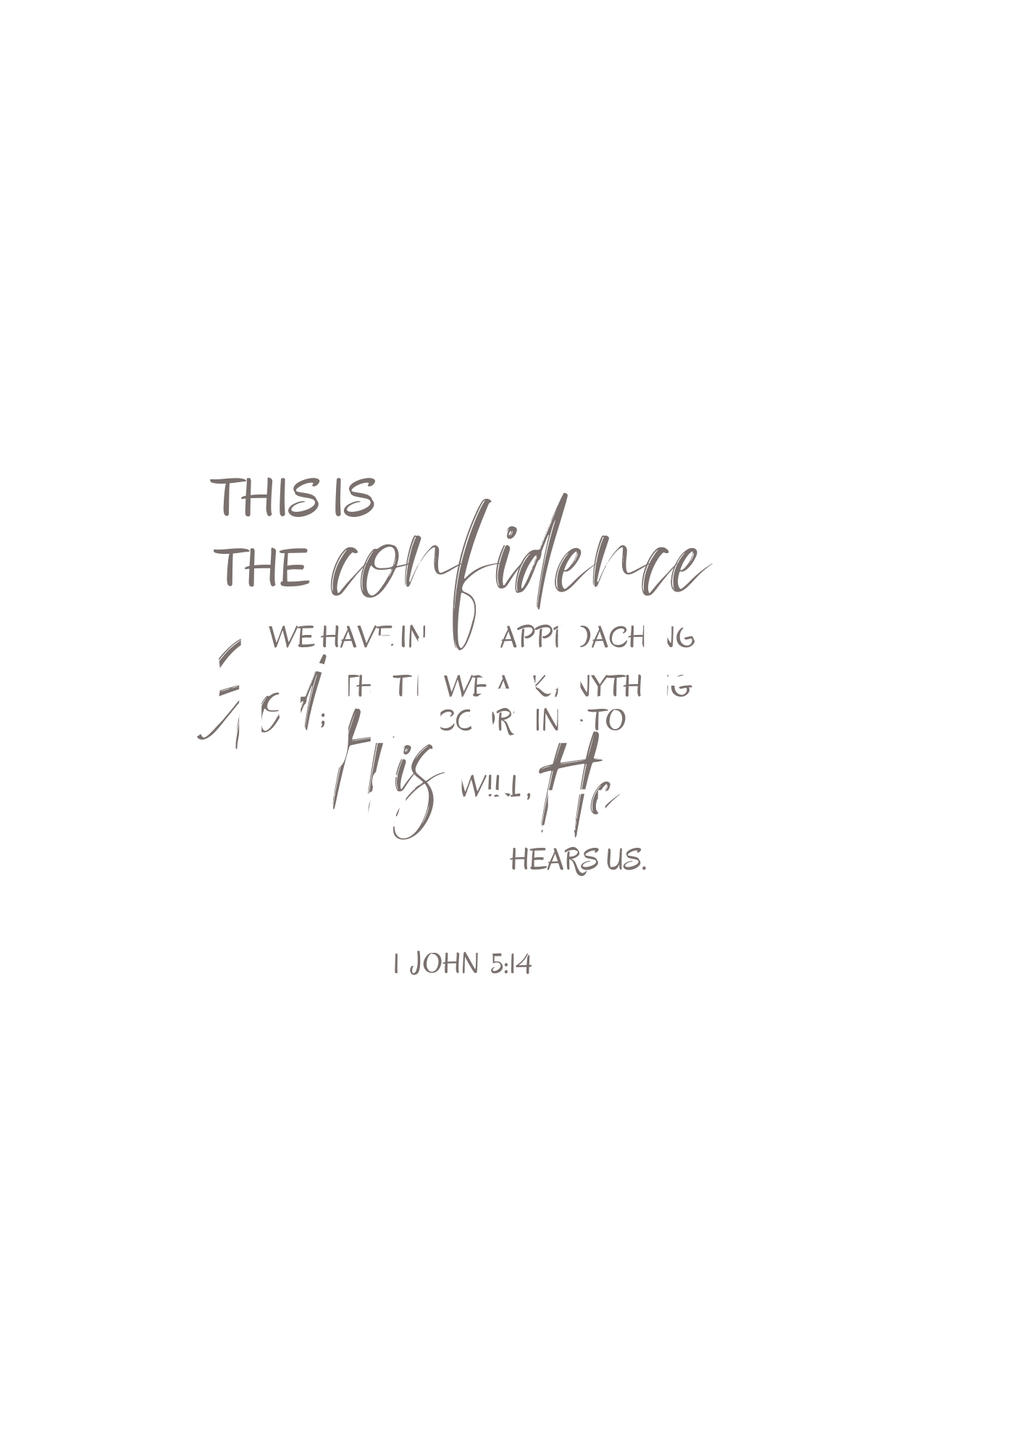 THIS IS
THE confidence
WE HAVE IN APPROACHING
God: THAT WE ASK ANYTHING
ACCORDING TO
His WILL, He
HEARS US.
1 JOHN 5:14